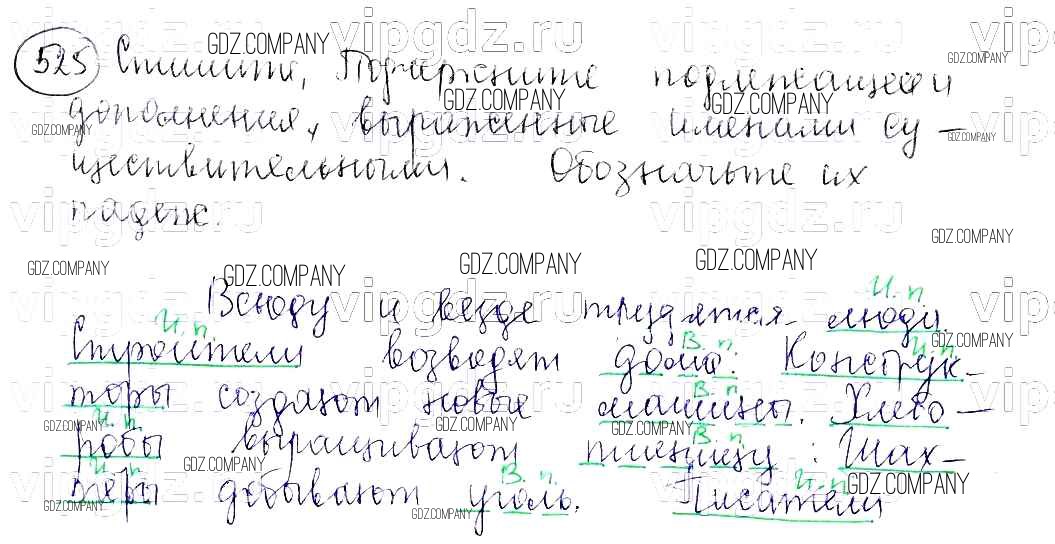 525 Спишите, Подчеркните подлежащее и
дополнения, выраженные именами су-
ществительными. Обозначьте их
падеж.
И. п.
Всюду и везде трудятся люди.
И. п. В. п. И. п.
Строители возводят дома. Конструк-
В. п.
торы создают новые машины. Хлебо-
И. п. В. п.
робы выращивают пшеницу. Шах-
И. п. В. п. И. п.
тёры добывают уголь. Писатели
vipgdz.ru
GDZ.COMPANY